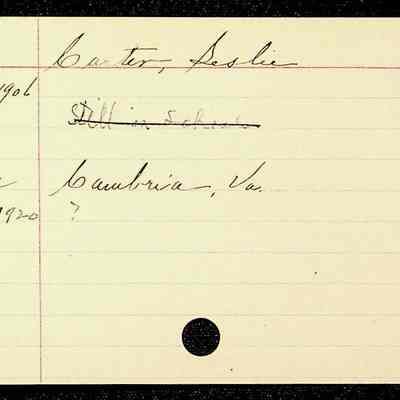 Carter, Leslie
1906
Still in School
Cambria, Va.
1920 ?